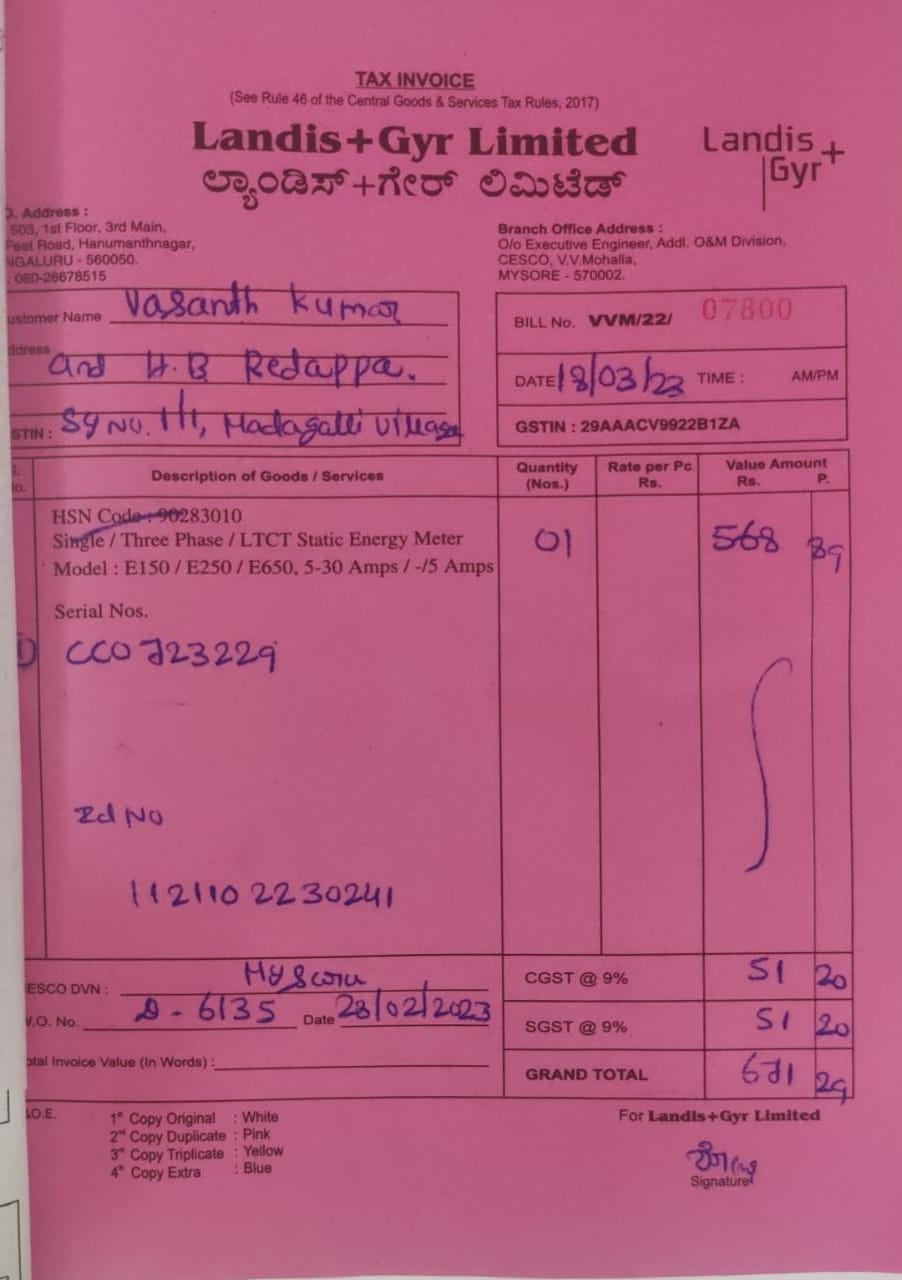 TAX INVOICE
(See Rule 46 of the Central Goods & Services Tax Rules, 2017)
Landis+Gyr Limited
ಲ್ಯಾಂಡಿಸ್+ಗೇರ್ ಲಿಮಿಟೆಡ್
Landis+
Gyr
. Address :
503, 1st Floor, 3rd Main,
Feet Road, Hanumanthnagar,
NGALURU - 560050.
: 080-26678515
Branch Office Address :
O/o Executive Engineer, Addl. O&M Division,
CESCO, V.V.Mohalla,
MYSORE - 570002.
ustomer Name Vasanth Kumar
ddress and H.B Redappa.
STIN : Sy No. 1/1, Madagalli Village
BILL No. VVM/22/ 07800
DATE 18/03/23 TIME : AM/PM
GSTIN : 29AAACV9922B1ZA
l. No. Description of Goods / Services Quantity (Nos.) Rate per Pc Rs. Value Amount Rs. P.
HSN Code : 90283010
Single / Three Phase / LTCT Static Energy Meter 01 568 89
Model : E150 / E250 / E650, 5-30 Amps / -/5 Amps
Serial Nos.
1) CC0723229
Id No
1121102230241
ESCO DVN : Mysuru
V.O. No. D - 6135 Date 28/02/2023
otal Invoice Value (In Words) :
CGST @ 9% 51 20
SGST @ 9% 51 20
GRAND TOTAL 671 29
.O.E.
1st Copy Original : White
2nd Copy Duplicate : Pink
3rd Copy Triplicate : Yellow
4th Copy Extra : Blue
For Landis+Gyr Limited
Signature